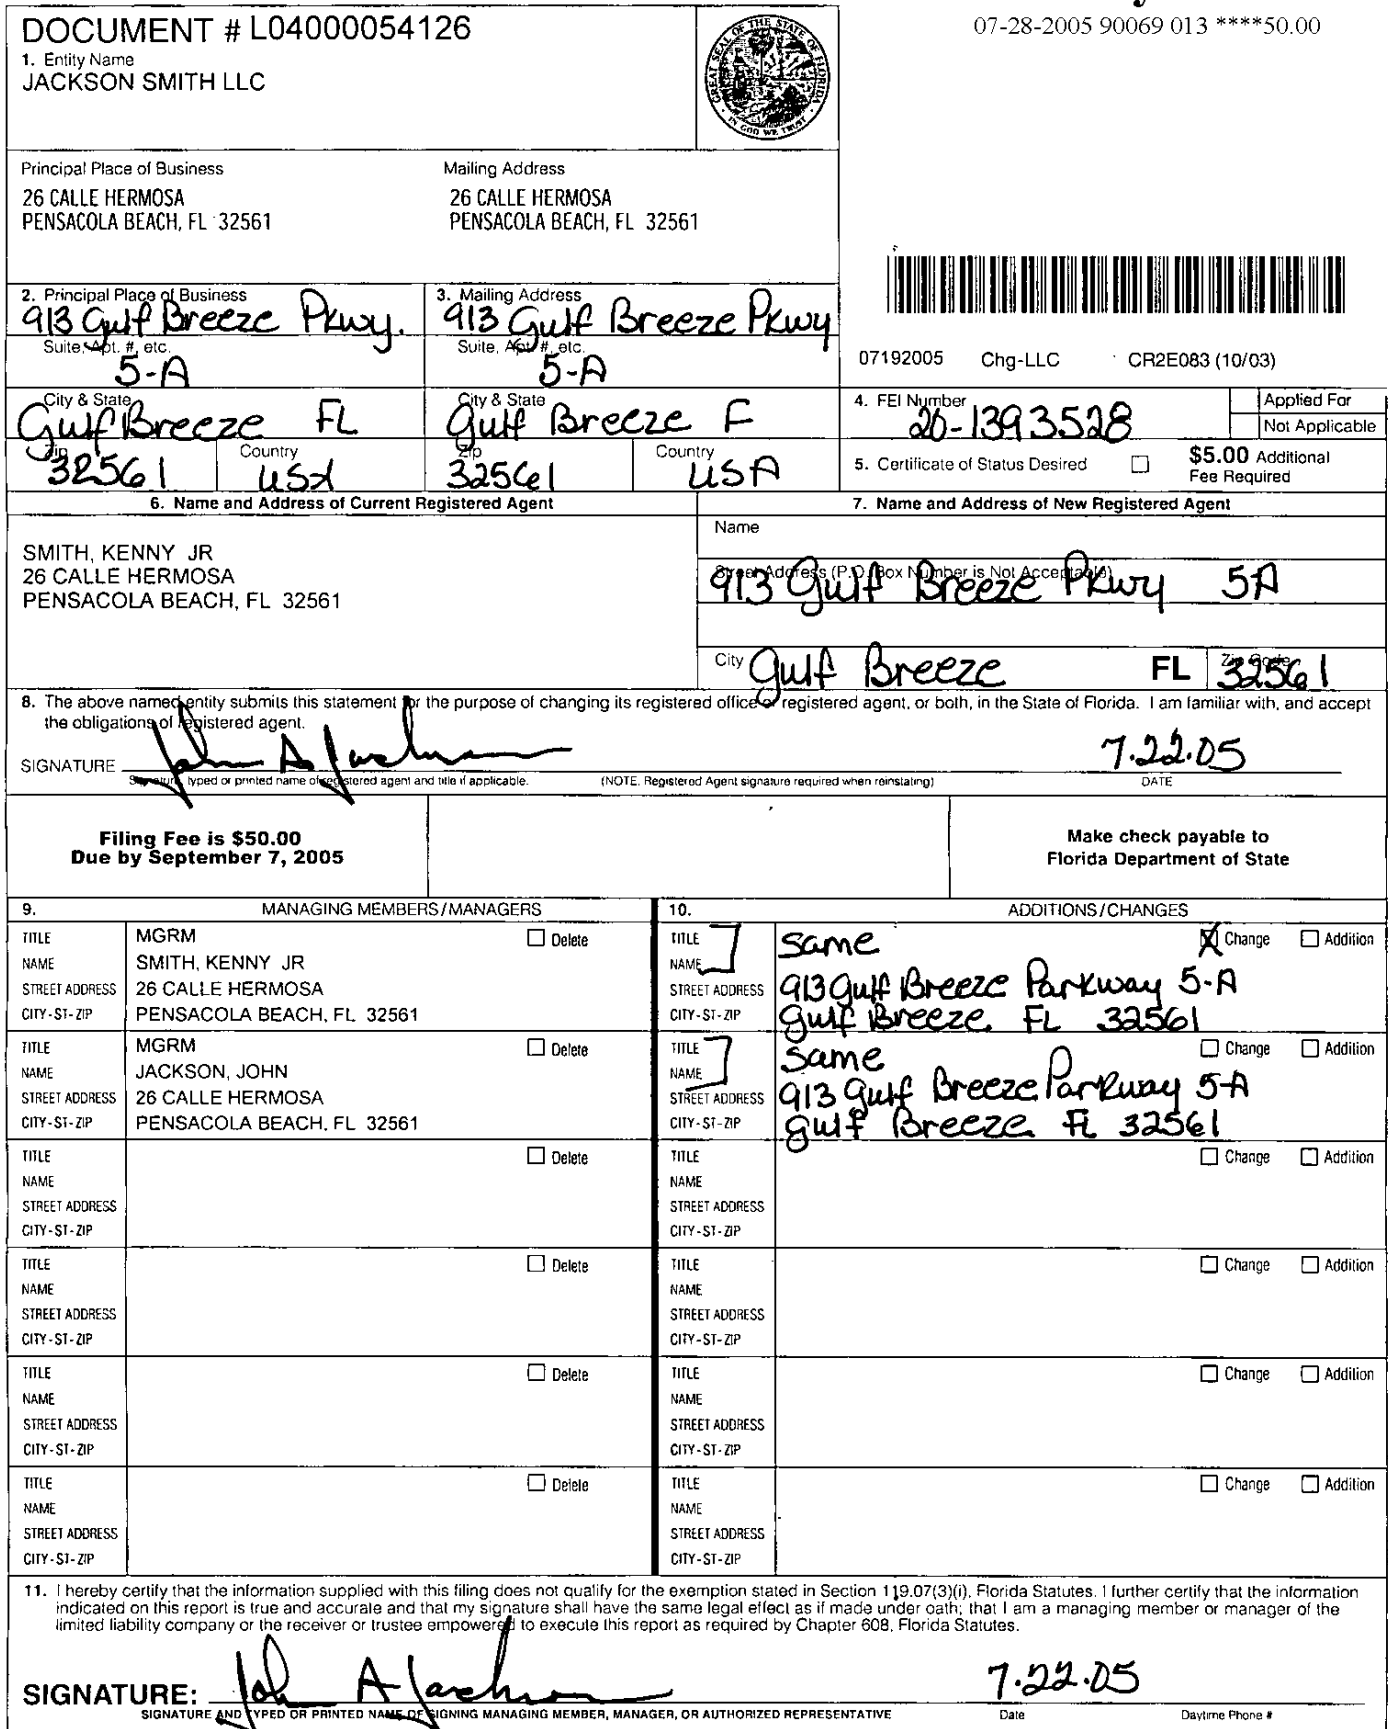 DOCUMENT # L04000054126
1. Entity Name
JACKSON SMITH LLC
GREAT SEAL OF THE STATE OF FLORIDA
IN GOD WE TRUST
07-28-2005 90069 013 ****50.00
Principal Place of Business
26 CALLE HERMOSA
PENSACOLA BEACH, FL 32561
Mailing Address
26 CALLE HERMOSA
PENSACOLA BEACH, FL 32561
2. Principal Place of Business
913 Gulf Breeze Pkwy.
Suite, Apt. #, etc.
5-A
City & State
Gulf Breeze FL
Zip
32561
Country
USA
3. Mailing Address
913 Gulf Breeze Pkwy
Suite, Apt. #, etc.
5-A
City & State
Gulf Breeze F
Zip
32561
Country
USA
07192005 Chg-LLC CR2E083 (10/03)
4. FEI Number
20-1393528
Applied For
Not Applicable
5. Certificate of Status Desired
$5.00 Additional
Fee Required
6. Name and Address of Current Registered Agent
SMITH, KENNY JR
26 CALLE HERMOSA
PENSACOLA BEACH, FL 32561
7. Name and Address of New Registered Agent
Name
Street Address (P.O. Box Number is Not Acceptable)
913 Gulf Breeze Pkwy 5A
City Gulf Breeze FL Zip Code 32561
8. The above named entity submits this statement for the purpose of changing its registered office or registered agent, or both, in the State of Florida. I am familiar with, and accept
the obligations of registered agent.
SIGNATURE John A Jackson 7.22.05
Signature, typed or printed name of registered agent and title if applicable. (NOTE. Registered Agent signature required when reinstating) DATE
Filing Fee is $50.00
Due by September 7, 2005
Make check payable to
Florida Department of State
9. MANAGING MEMBERS/MANAGERS
TITLE MGRM Delete
NAME SMITH, KENNY JR
STREET ADDRESS 26 CALLE HERMOSA
CITY-ST-ZIP PENSACOLA BEACH, FL 32561
TITLE MGRM Delete
NAME JACKSON, JOHN
STREET ADDRESS 26 CALLE HERMOSA
CITY-ST-ZIP PENSACOLA BEACH, FL 32561
TITLE Delete
NAME
STREET ADDRESS
CITY-ST-ZIP
TITLE Delete
NAME
STREET ADDRESS
CITY-ST-ZIP
TITLE Delete
NAME
STREET ADDRESS
CITY-ST-ZIP
TITLE Delete
NAME
STREET ADDRESS
CITY-ST-ZIP
10. ADDITIONS/CHANGES
TITLE same X Change Addition
NAME
STREET ADDRESS 913 Gulf Breeze Parkway 5-A
CITY-ST-ZIP Gulf Breeze FL 32561
TITLE same Change Addition
NAME
STREET ADDRESS 913 Gulf Breeze Parkway 5-A
CITY-ST-ZIP Gulf Breeze FL 32561
TITLE Change Addition
NAME
STREET ADDRESS
CITY-ST-ZIP
TITLE Change Addition
NAME
STREET ADDRESS
CITY-ST-ZIP
TITLE Change Addition
NAME
STREET ADDRESS
CITY-ST-ZIP
TITLE Change Addition
NAME
STREET ADDRESS
CITY-ST-ZIP
11. I hereby certify that the information supplied with this filing does not qualify for the exemption stated in Section 119.07(3)(i), Florida Statutes. I further certify that the information
indicated on this report is true and accurate and that my signature shall have the same legal effect as if made under oath; that I am a managing member or manager of the
limited liability company or the receiver or trustee empowered to execute this report as required by Chapter 608, Florida Statutes.
SIGNATURE: John A Jackson 7.22.05
SIGNATURE AND TYPED OR PRINTED NAME OF SIGNING MANAGING MEMBER, MANAGER, OR AUTHORIZED REPRESENTATIVE Date Daytime Phone #